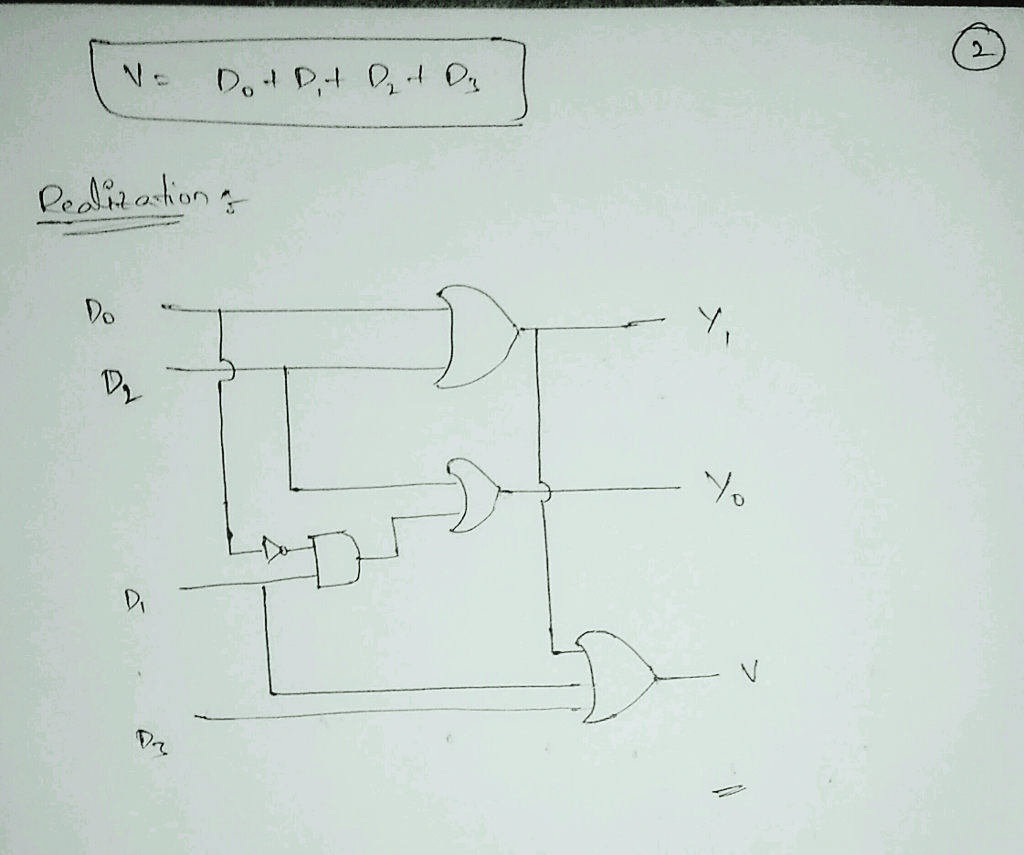 2
V = D₀ + D₁ + D₂ + D₃
Realization :
D₀
Y₁
D₂
Y₀
D₁
V
D₃